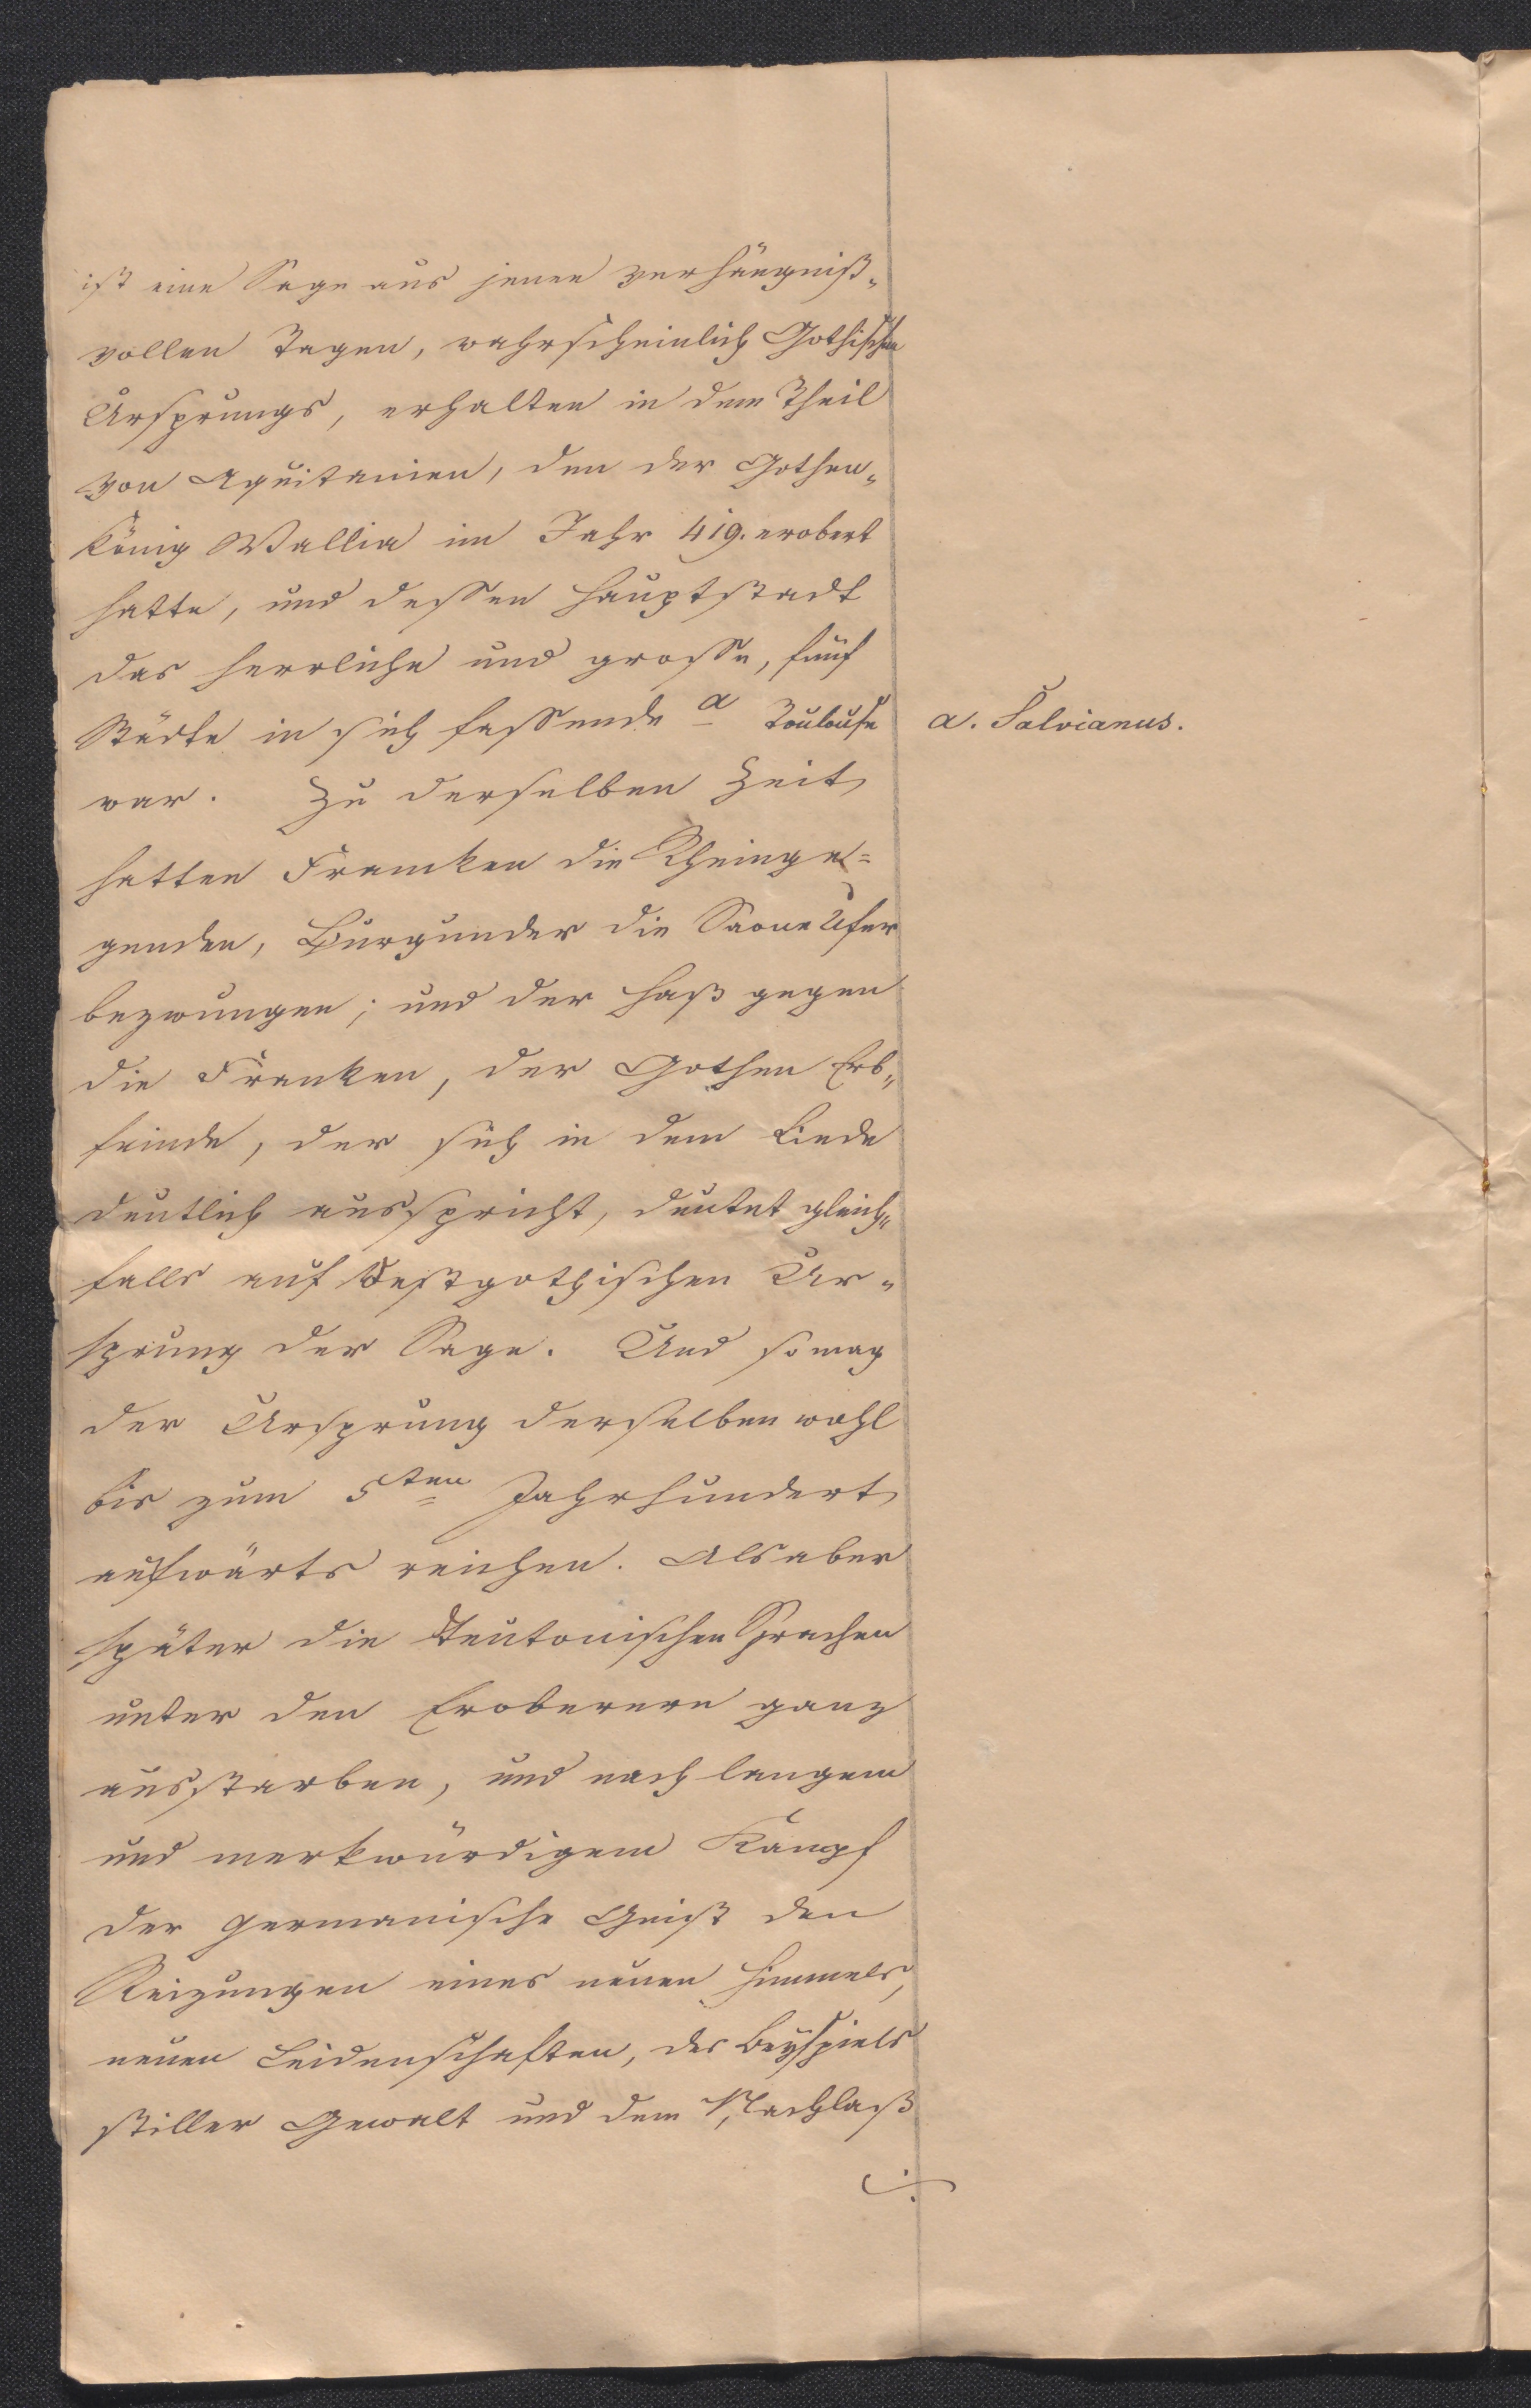 ist eine Sage aus jenen verhängniß„
vollen Tagen, wahrscheinlich Gothischen
Ursprungs, erhalten in dem Theil
von Aquitanien, den der Gothen„
könig Wallia im Jahr 419. erobert
hatte, und dessen Hauptstadt
das herrliche und grosse, fünf
Städte in sich fassende a Toulouse
a. Salvianus.
war. Zu derselben Zeit
hatten Franken die Rheinge=
genden, Burgunder die Saone Ufer
bezwungen; und der Haß gegen
die Franken, der Gothen Erb„
feinde, der sich in dem Liede
deutlich ausspricht, deutet gleich„
falls auf Westgothischen Ur„
sprung der Sage. Und so mag
der Ursprung derselben wohl
bis zum 5ten Jahrhundert
aufwärts reichen. Als aber
später die Teutonischen Sprachen
unter den Eroberern ganz
ausstarben, und nach langem
und merkwürdigem Kampf
der germanische Geist den
Reizungen eines neuen Himmels,
neuen Leidenschaften, des Beyspiels
stiller Gewalt und dem Nachlaß